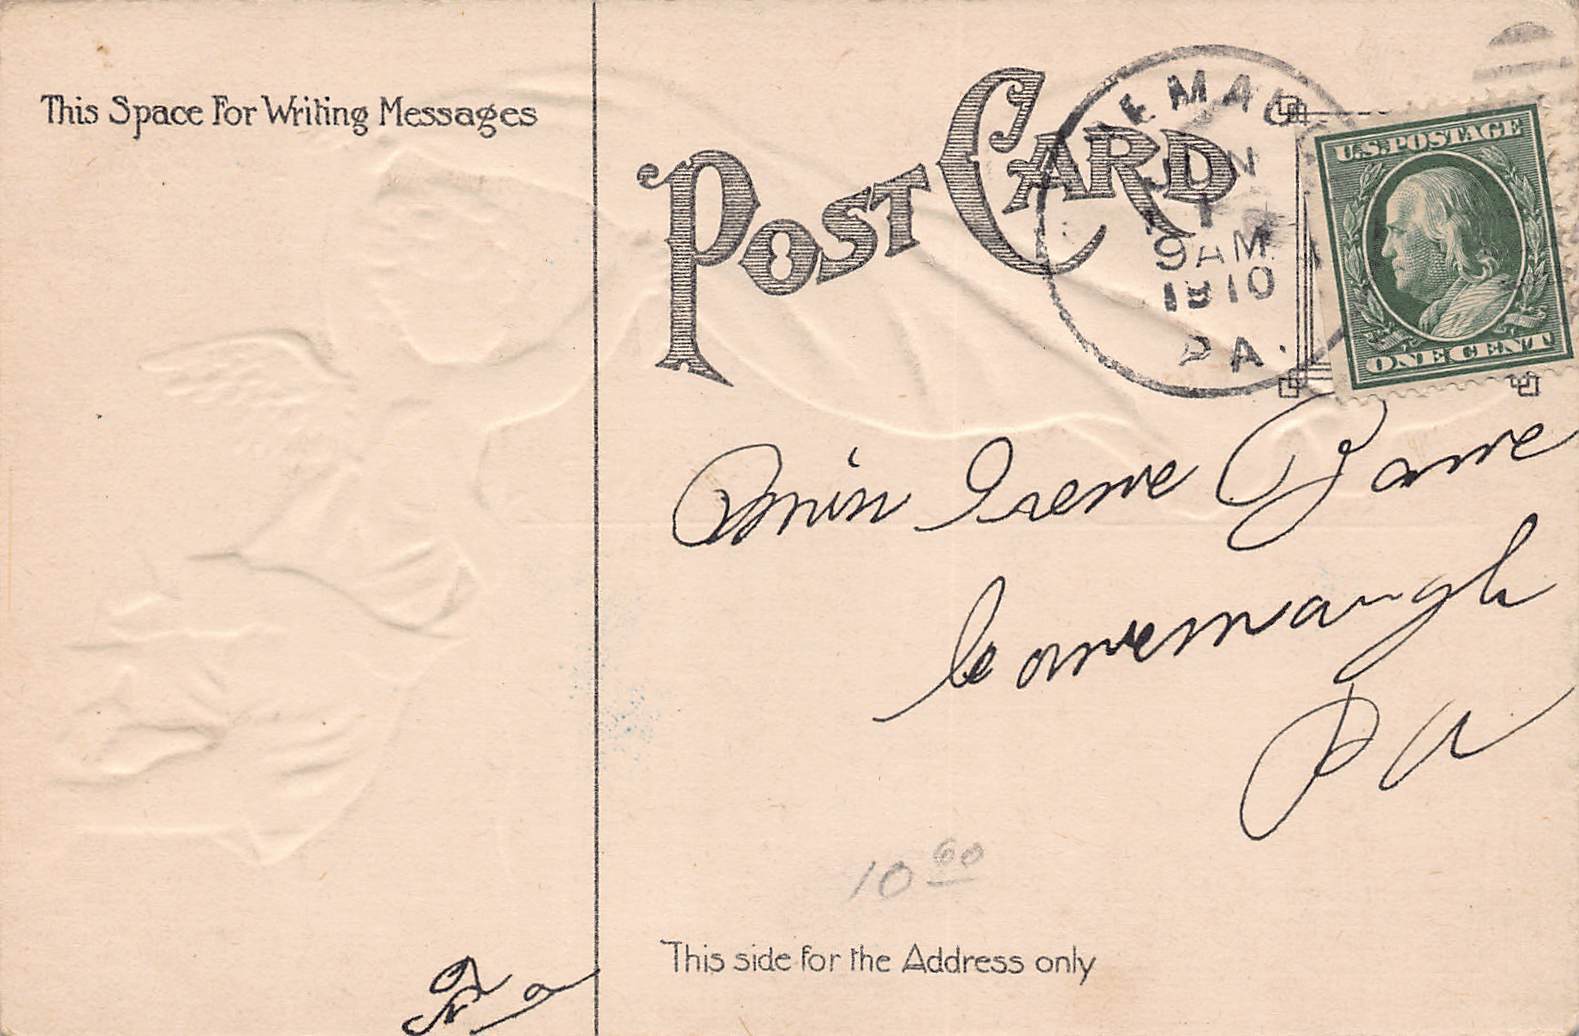 This Space For Writing Messages
POST CARD
EMAU
JUN
1
9 AM
1910
PA.
U.S. POSTAGE
ONE CENT
Miss Irene
Conemaugh
Pa
10 60
This side for the Address only